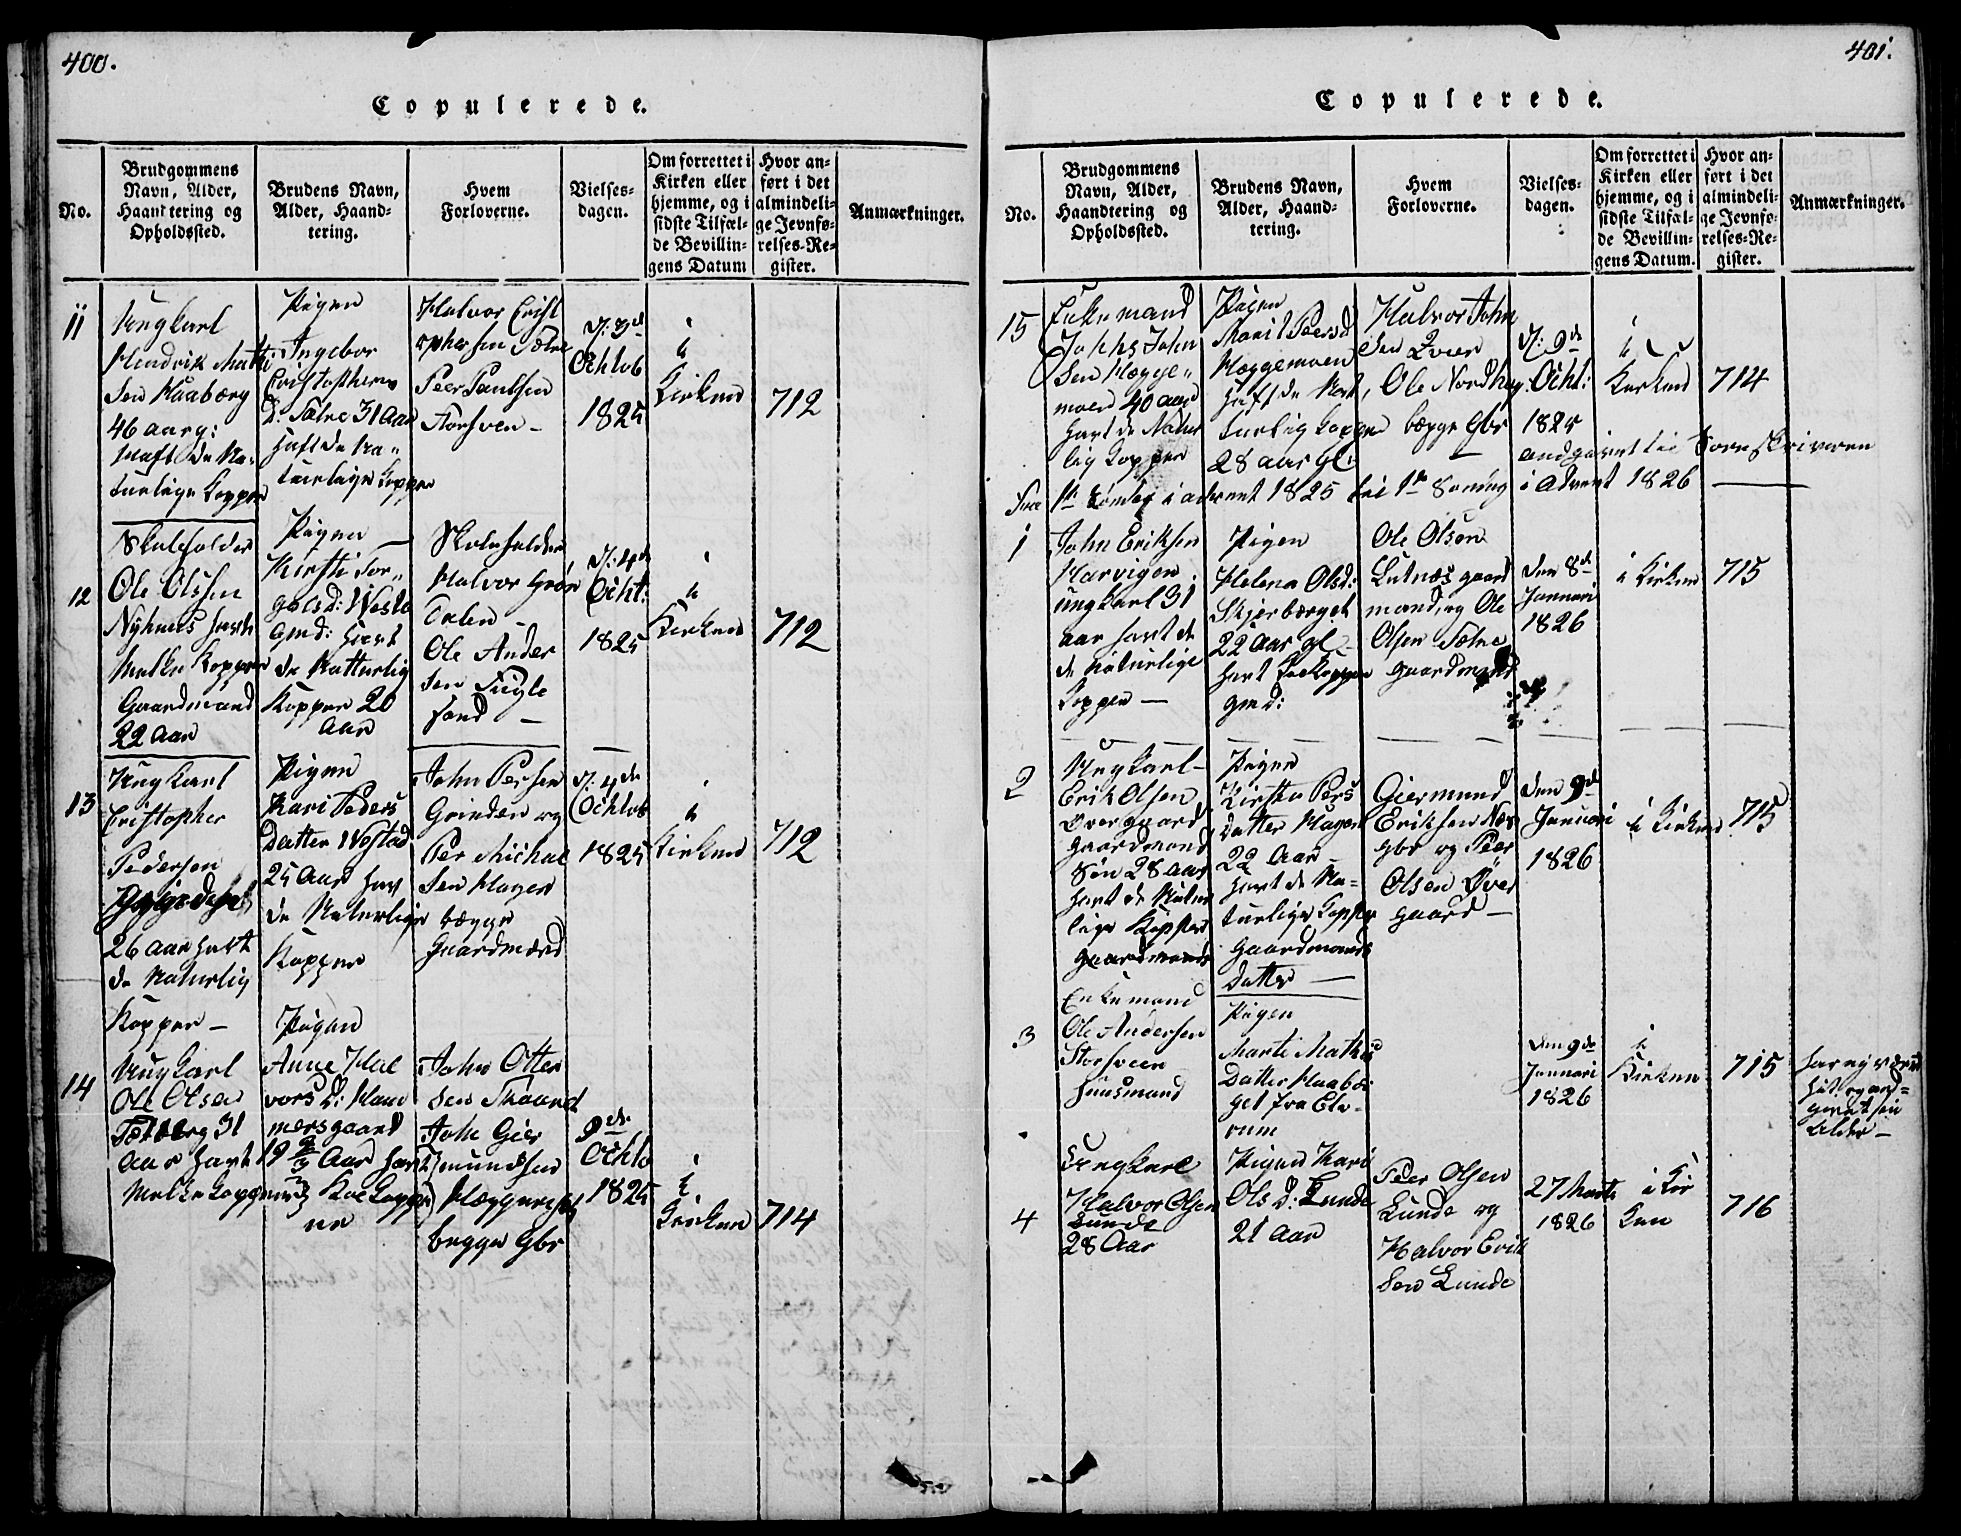 400.
Copulerede.
No.
Brudgommens
Navn, Alder,
Haandtering og
Opholdssted.
Brudens Navn,
Alder, Haand-
tering.
Hvem
Forloverne.
Vielses-
dagen.
Om forrettet i
Kirken eller
hjemme, og i
sidste Tilfæl-
de Bevillin-
gens Datum
Hvor an-
ført i det
almindeli-
ge Jevnfø-
relses-Re-
gister.
Anmærkninger.
11
Ungkarl
Hendrik Matti
Sen Haaberg
46 aarg:
Haft de Na-
turlige Kopper
Pigen
Ingebor
Cristophers
D: Sætre 31 Aar
Haft de Na-
turlige Kopper
Halvor Crist
ophersen Sætre
Peer Paulsen
Storsven -
D: 3de
Octob
1825
i
Kirken
712
12
Skoleholder
Ole Olssen
Nyhuus havt
Melke Kopper
Gaardmand
22 Aar
Pigen
Kirsti Tor-
gelsd: Westb
Gmd: havt
de Natturlig
Kopper 20
Aar
Skoleholder
Halvor Grøn
Dalen -
Ole Ander
Sen Fugle
Sand -
D: 4de
Octt:
1825
i
Kirken
712
13
Ungkarl
Cristopher
Pedersen
26 aar havt
de Naturlig
Kopper -
Pigen
Kari Peders
Datter Westad
25 Aar hav
de Naturlige
Kopper
John Persen
Grinden og
Per Michel
Sen Hagen
begge
Gaardmænd
D: 4de
Octob
1825
i
Kirken
712
14
Ungkarl
Ole Olsen
Tætberg 31
Aar havt
Melke Kopperne
Pigen
Anne Hal
vors D: Ham
mersgaard
19 3/4 Aar havt
Koe Kopper
ne
John Otter
Sen Straand
John Gier
mundsen
begge Gbr
9de
Octo
1825
i
Kirken
714
401.
Copulerede.
No.
Brudgommens
Navn, Alder,
Haandtering og
Opholdssted.
Brudens Navn,
Alder, Haand-
tering.
Hvem
Forloverne.
Vielses-
dagen.
Om forrettet i
Kirken eller
hjemme, og i
sidste Tilfæl-
de Bevillin-
gens Datum.
Hvor an-
ført i det
almindeli-
ge Jevnfø-
relses-Re-
gister.
Anmærkninger.
15
Enkemand
Johs John
Sen Hægge-
moen 40 aar
havt de Natur
lig Kopper
Pigen
Marit Peersd
Hæggemoen
haft de Nat
turlig Kopper
28 aar gl:
Halvor John
Sen Qver
Ole Nordhag
begge Gbr
D: 9de
Octt:
1825
i
Kirken
714
andgivet til Sorenskriveren
Fra 1te Søndag i advent 1825 til 1te Søndag i Advent 1826
1
John Eriksen
Harvigen
ungkarl 31
aar havt de
de Naturlige
Kopper -
Pigen
Helena Olsd:
Skjerberget
22 Aar gl -
havt Koekopper
gmd:
Ole Olsen
Lutnæs gaard
mand, og Ole
Olsen Sætre
gaardmand
Den 8de
Januari
1826
i Kirken
715
2
Ungkarl
Erik Olsen
Øvergaard
gaardmand
Søn 28 aar
havt de Natur
lige Kopper
gaardmands
Pigen
Kirsten Pers
datter Hagen
22 Aar -
havt de Na-
turlige Kopper
gaardmands
datter -
Giermund
Eriksen Næs
gbr og Peer
Olsen Øver
gaard -
Den 9de
Januari
1826
i Kirken
715
3
Enkemand
Ole Andersen
Storsveen
Huusmand
Pigen
Marte Mathis
datter Haabær
get fra Elv-
rum
Den 9de
Januari
1826
i
Kirken
715
har ej værd
her og and-
givet sin
Alder -
4
Ungkarl
Halvor Olsen
Lunde
28 Aar
Pigen Kari
Ols D: Lunde
21 Aar
Peer Olsen
Lunde og
Halvor Erik
Sen Lunde
27 Marts
1826
i Kir
Ken
716